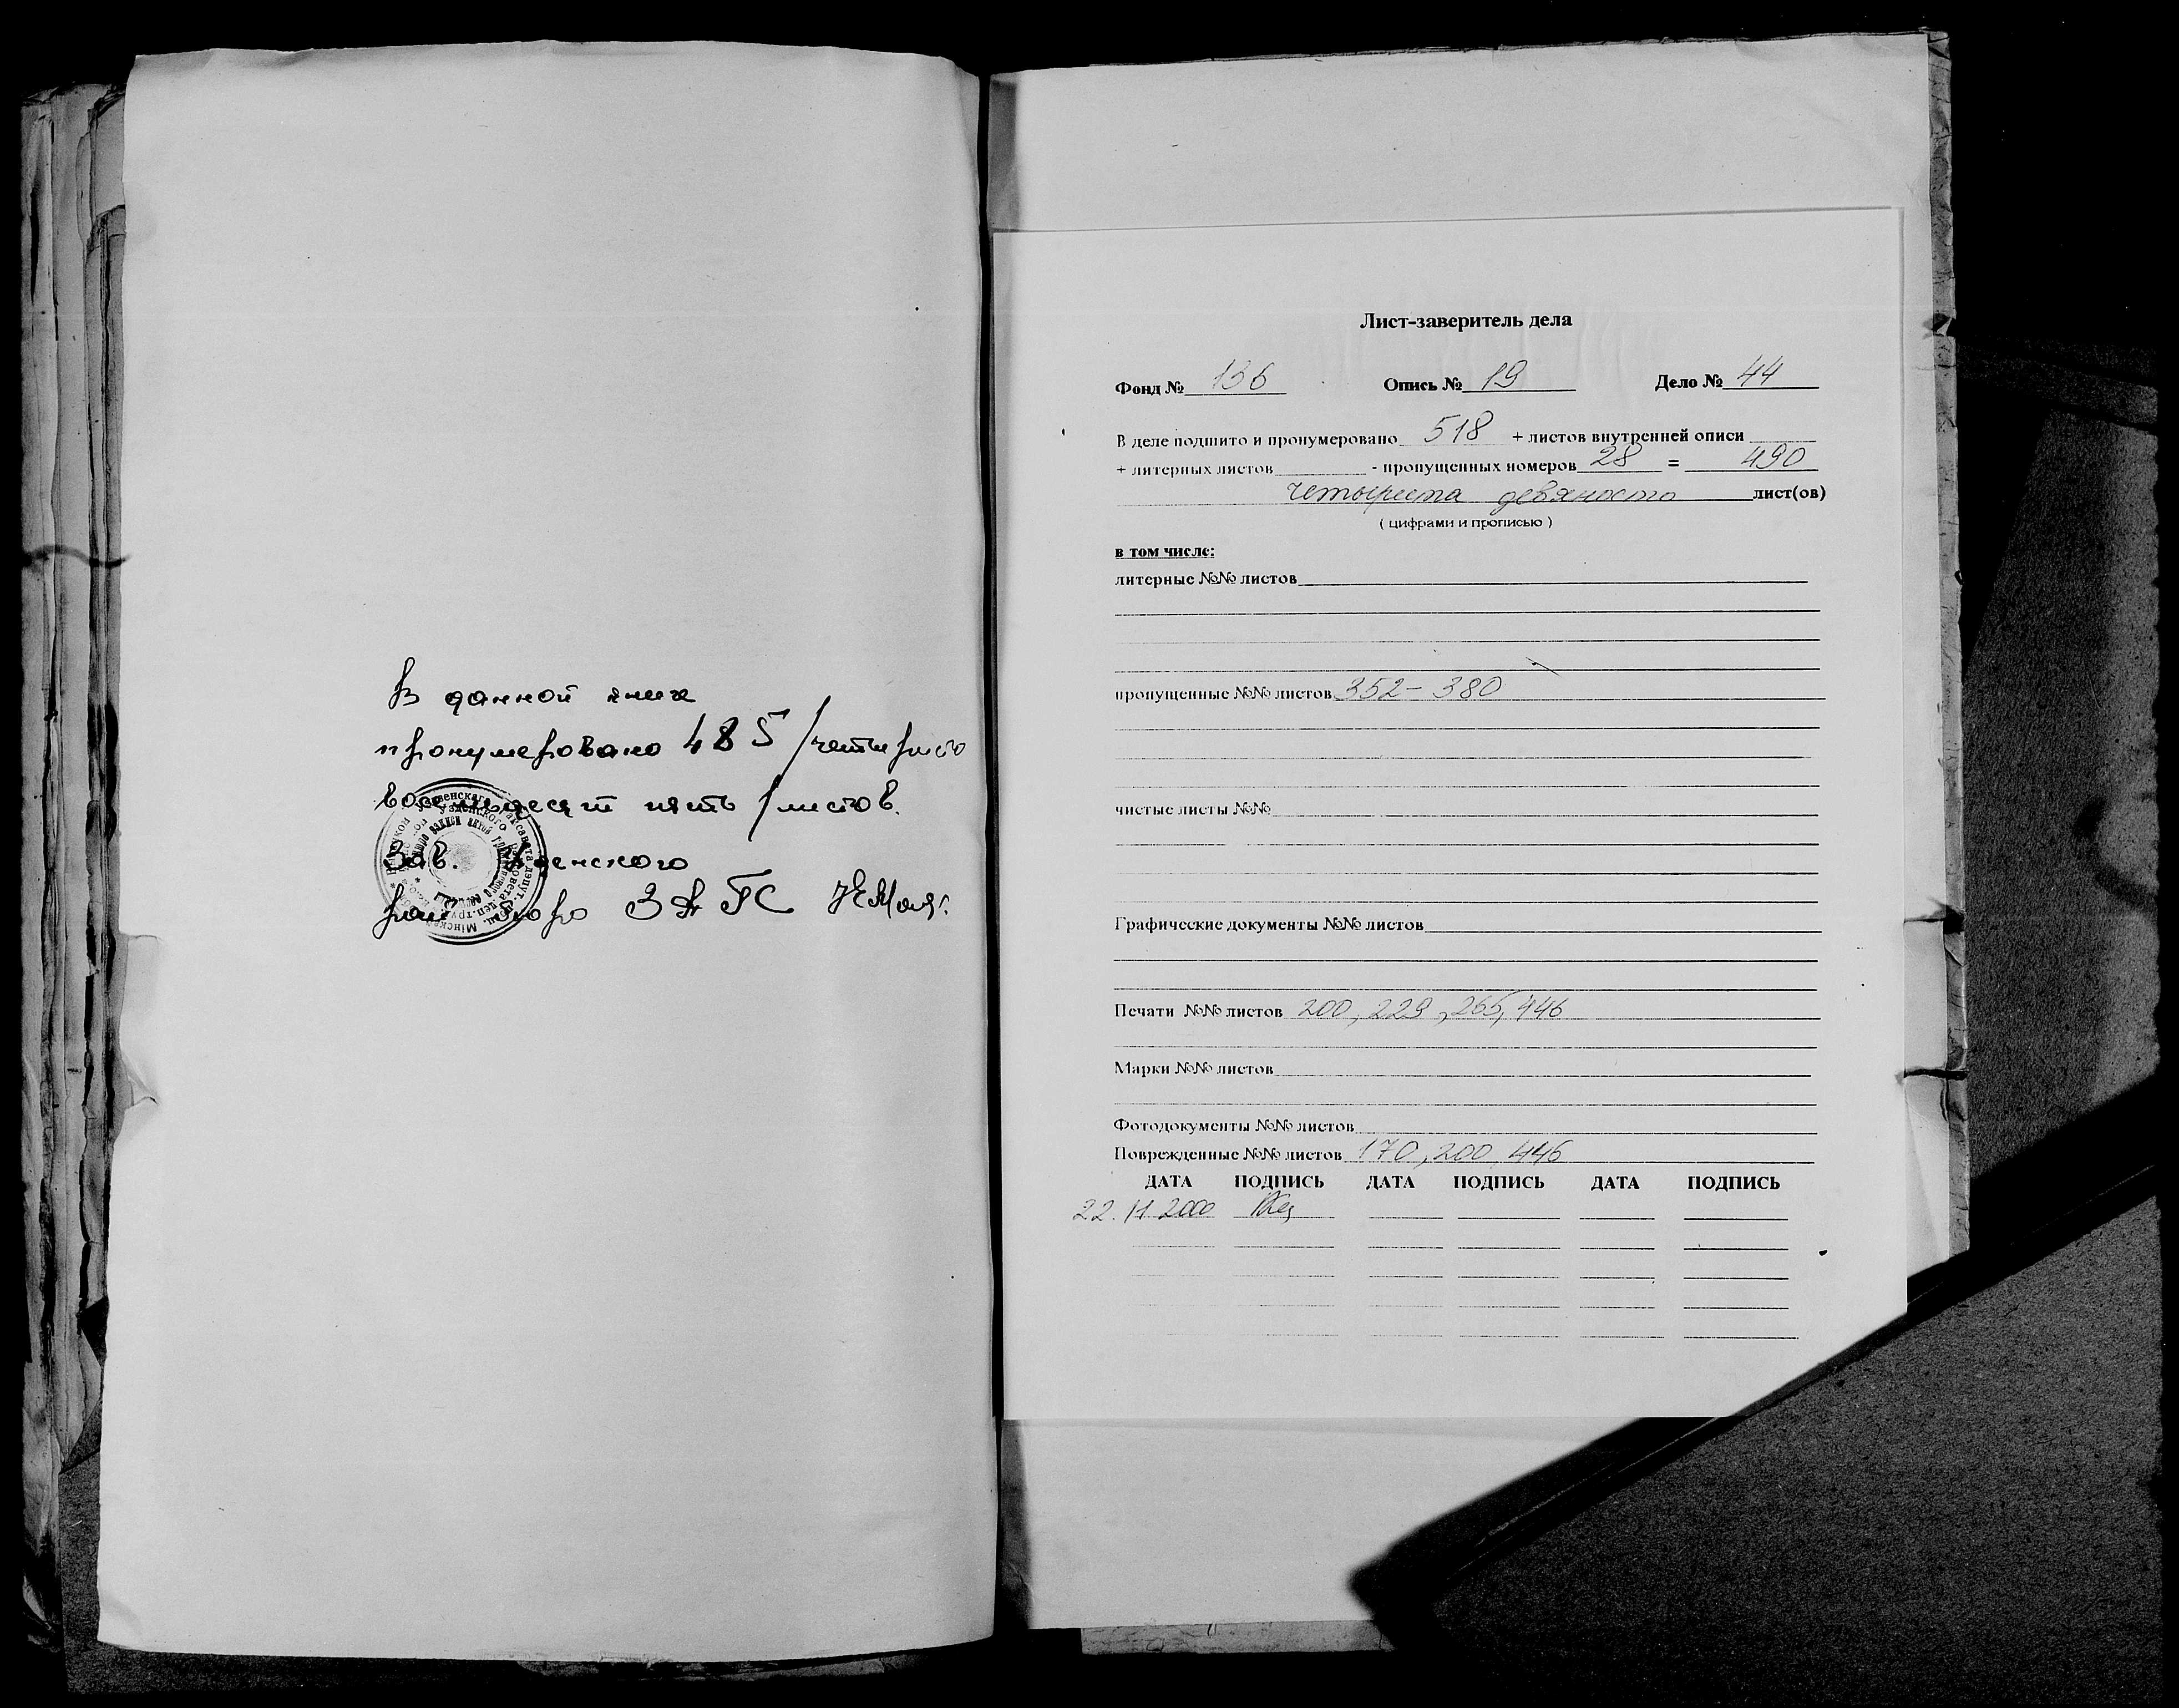 В данной книге
пронумеровано 485 /четыреста
восемьдесят пять/ листов.
Зав. Узденского
рай бюро ЗАГС
Лист-заверитель дела
Фонд № 136 Опись № 19 Дело № 44
В деле подшито и пронумеровано 518 + листов внутренней описи
+ литерных листов - пропущенных номеров 28 = 490
четыреста девяносто лист(ов)
( цифрами и прописью )
в том числе:
литерные №№ листов
пропущенные №№ листов 352-380
чистые листы №№
Графические документы №№ листов
Печати №№ листов 200, 229, 265, 446
Марки №№ листов
Фотодокументы №№ листов
Поврежденные №№ листов 170, 200, 446
ДАТА ПОДПИСЬ ДАТА ПОДПИСЬ ДАТА ПОДПИСЬ
22.11.2000